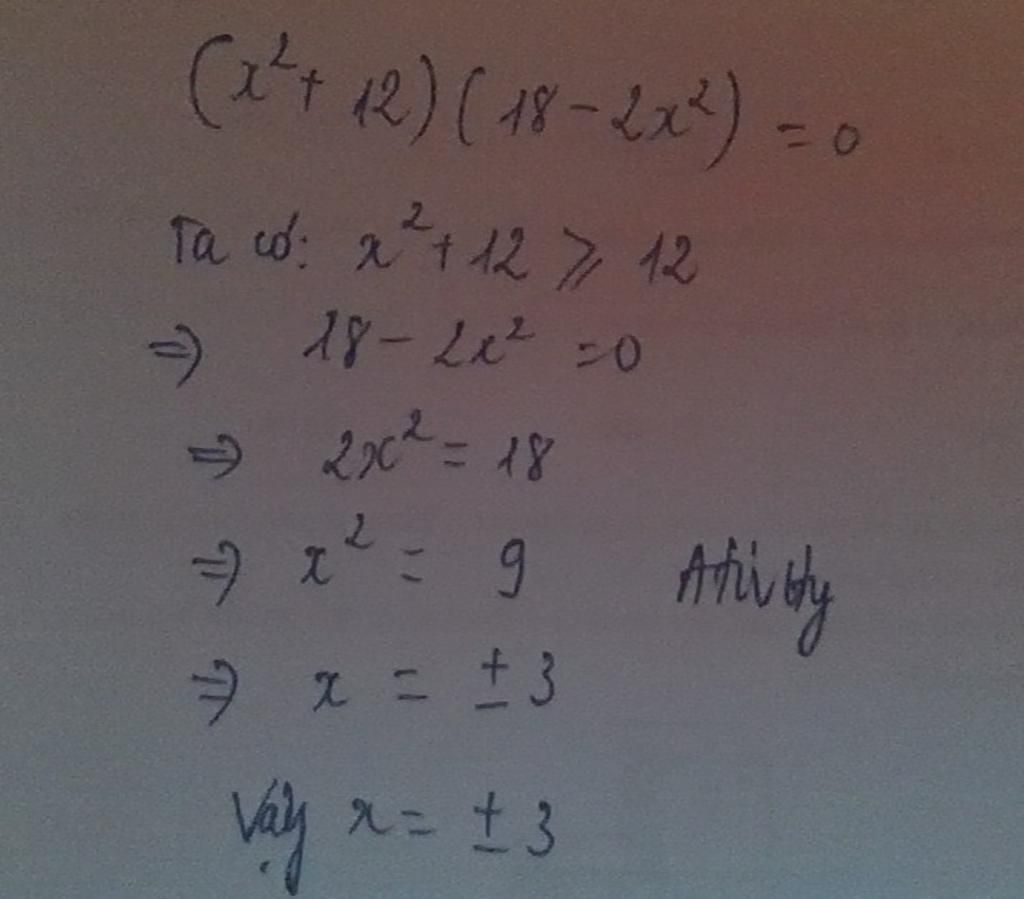 (x² + 12) (18 - 2x²) = 0
Ta có: x² + 12 ⩾ 12
⇒ 18 - 2x² = 0
⇒ 2x² = 18
⇒ x² = 9
⇒ x = ± 3
Vậy x = ± 3